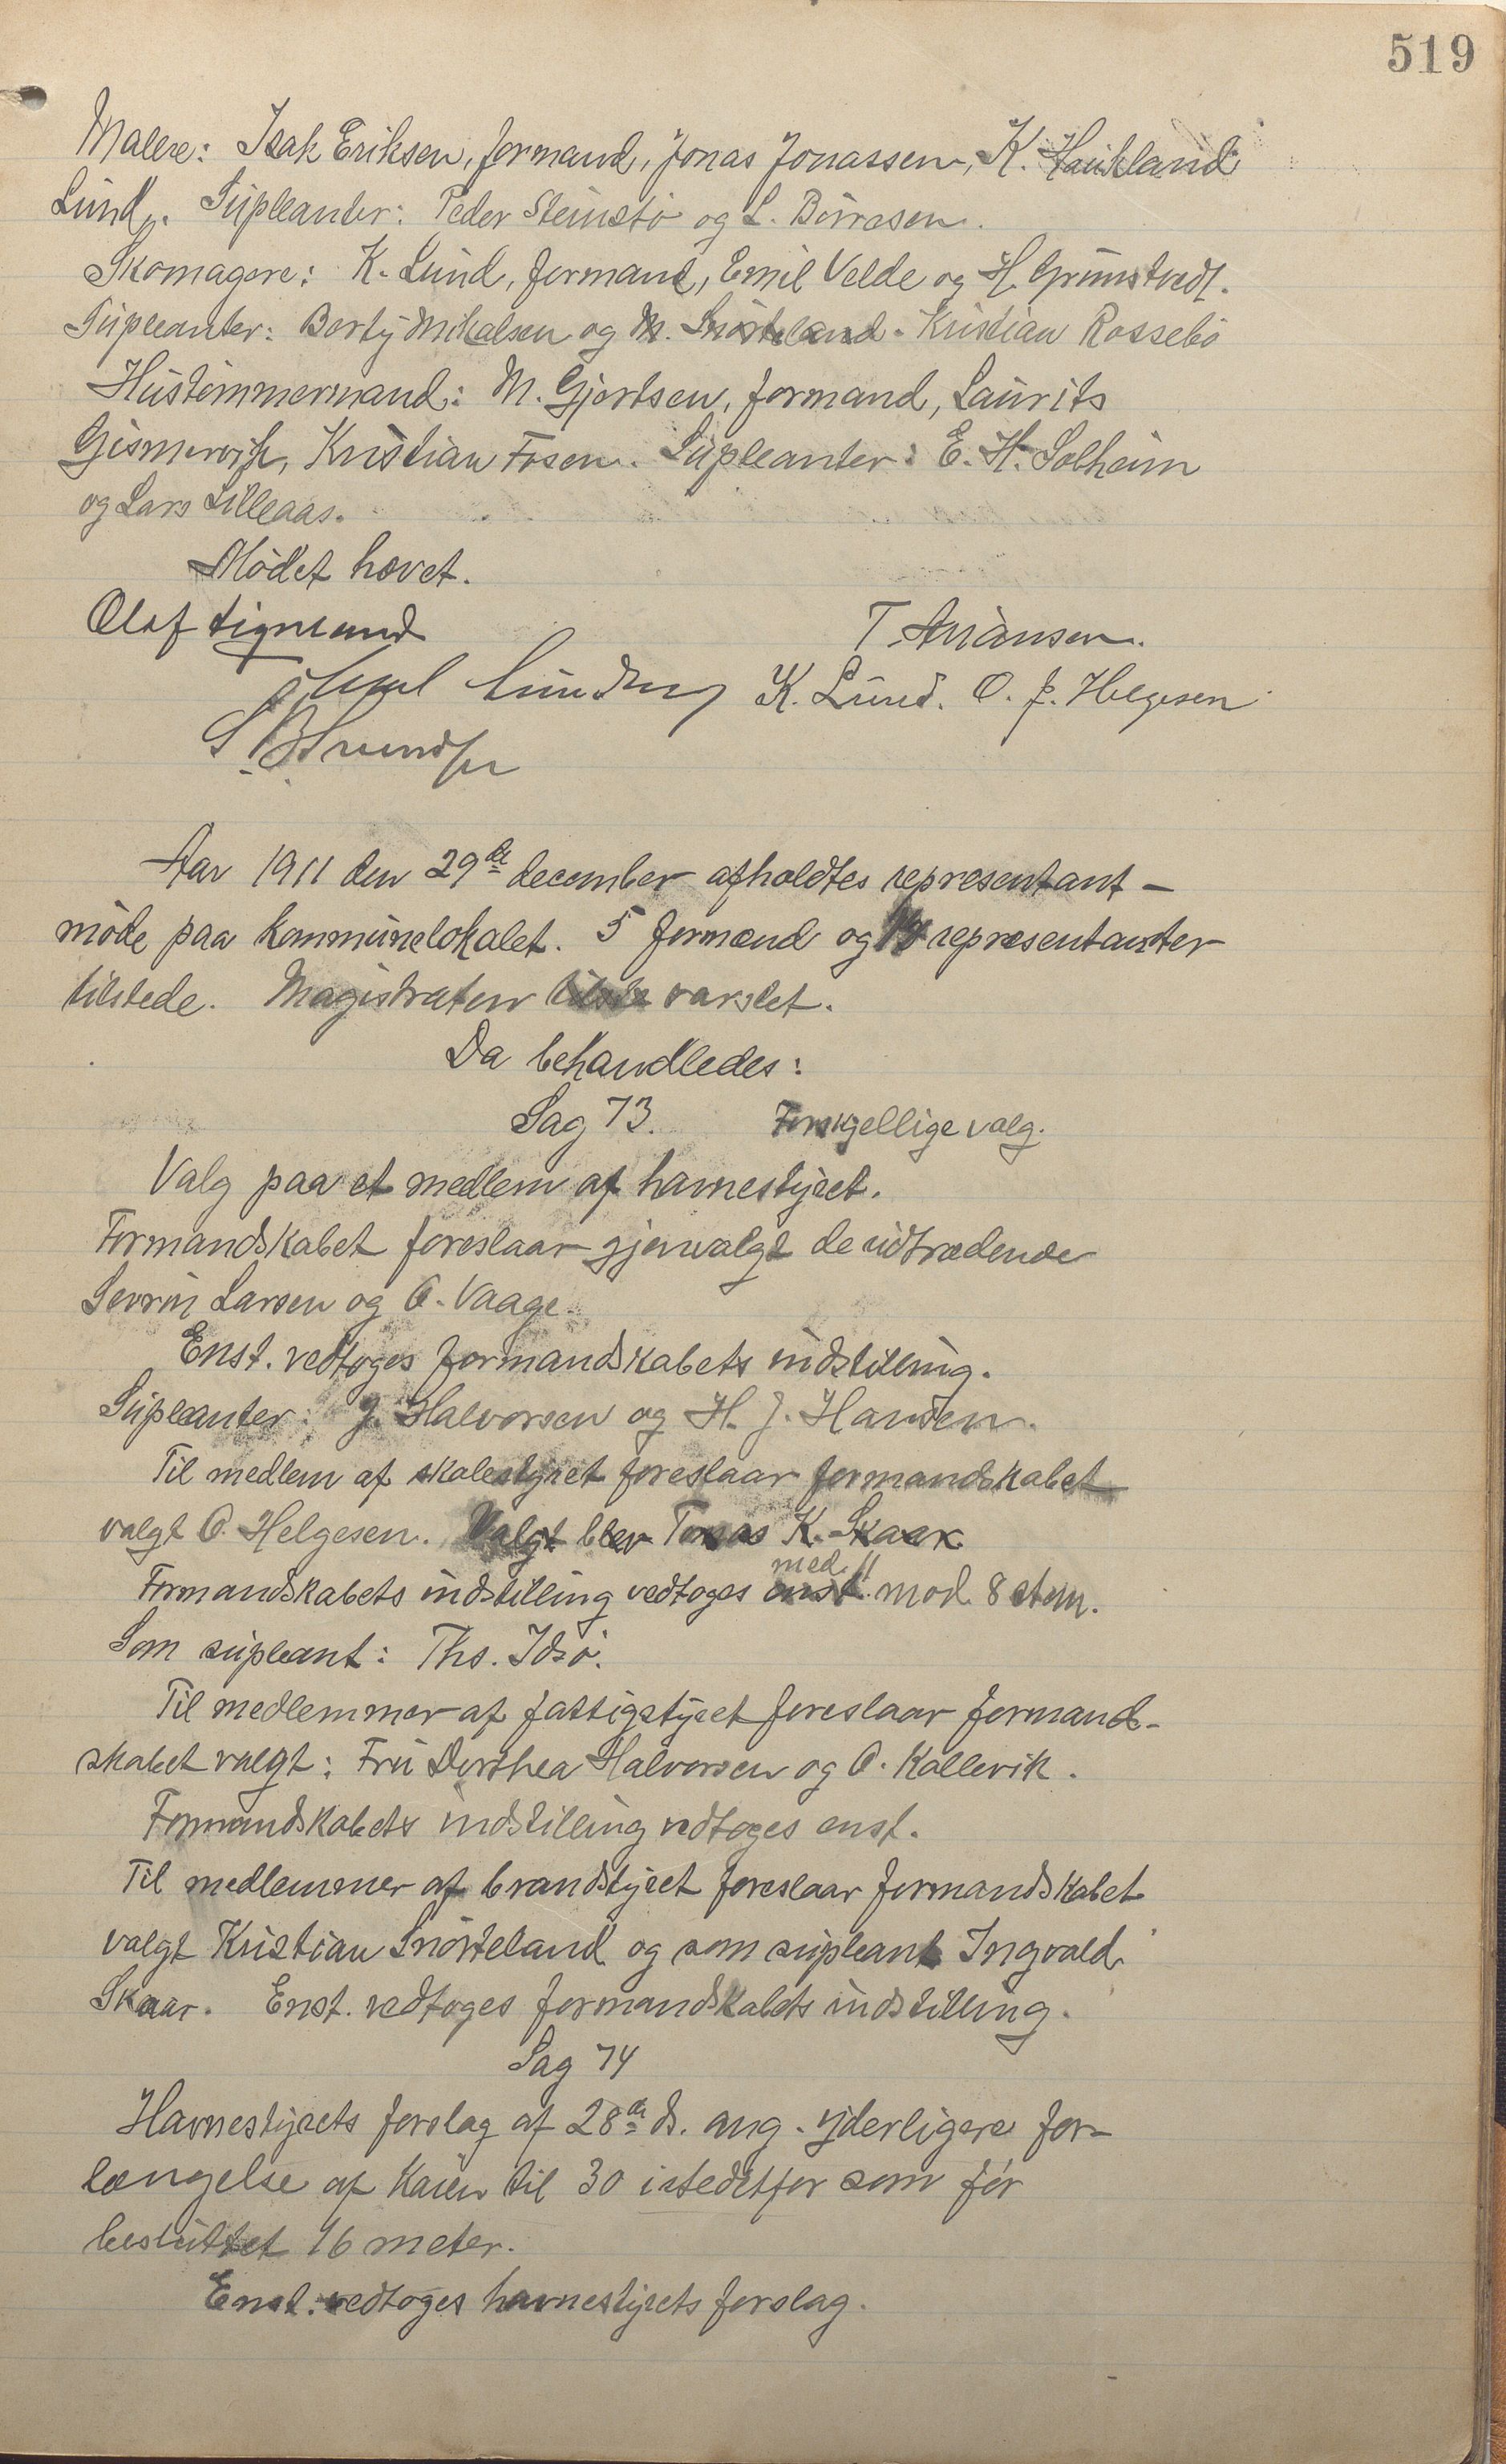 519
Malere: Isak Eriksen, formand, Jonas Jonassen, K. Haukland
Lund. Supleanter: Peder Steinsbø og L. Børresen.
Skomagere: K. Lund, formand, Emil Velde og H. Grimstvedt.
Supleanter: Berty Mikalsen og M. Snørteland. Kristian Rossebø
Hustømmermænd: M. Gjertsen, formand, Laurits
Gismervik, Kristian Fosen. Supleanter: E. H. Solheim
og Lars Lilleaas.
Mødet hævet.
Olaf Sigmund T. Amansen.
Lundberg K. Lund. O. J. Helgesen
Aar 1911 den 29de december afholdtes representant-
møde paa kommunelokalet. 5 formænd og representanter
tilstede. Magistraten varslet.
Da behandledes:
Sag 73. Forskjellige valg.
Valg paa et medlem af havnestyret.
Formandskabet foreslaar gjenvalgt de udtrædende
Sevrin Larsen og O. Vaage.
Enst. vedtoges formandskabets indstilling.
Supleanter: J. Halvorsen og H. J. Hansen.
Til medlem af skolestyret foreslaar formandskabet
valgt O. Helgesen. Valgt blev Tomas K. Skaar
Formandskabets indstilling vedtoges enst. med 11 mod 8 stem.
Som supleant: Ths. Idsø.
Til medlemmer af fattigstyret foreslaar formand-
skabet valgt: Fru Dorthea Halvorsen og O. Kallevik.
Formandskabets indstilling vedtoges enst.
Til medlemmer af brandstyret foreslaar formandskabet
valgt Kristian Snørteland og som supleant Ingvald
Skaar. Enst. vedtoges formandskabets indstilling.
Sag 74
Havnestyrets forslag af 28de ds. ang. yderligere for-
længelse af kaien til 30 istedetfor som før
besluttet 16 meter.
Enst. vedtoges havnestyrets forslag.